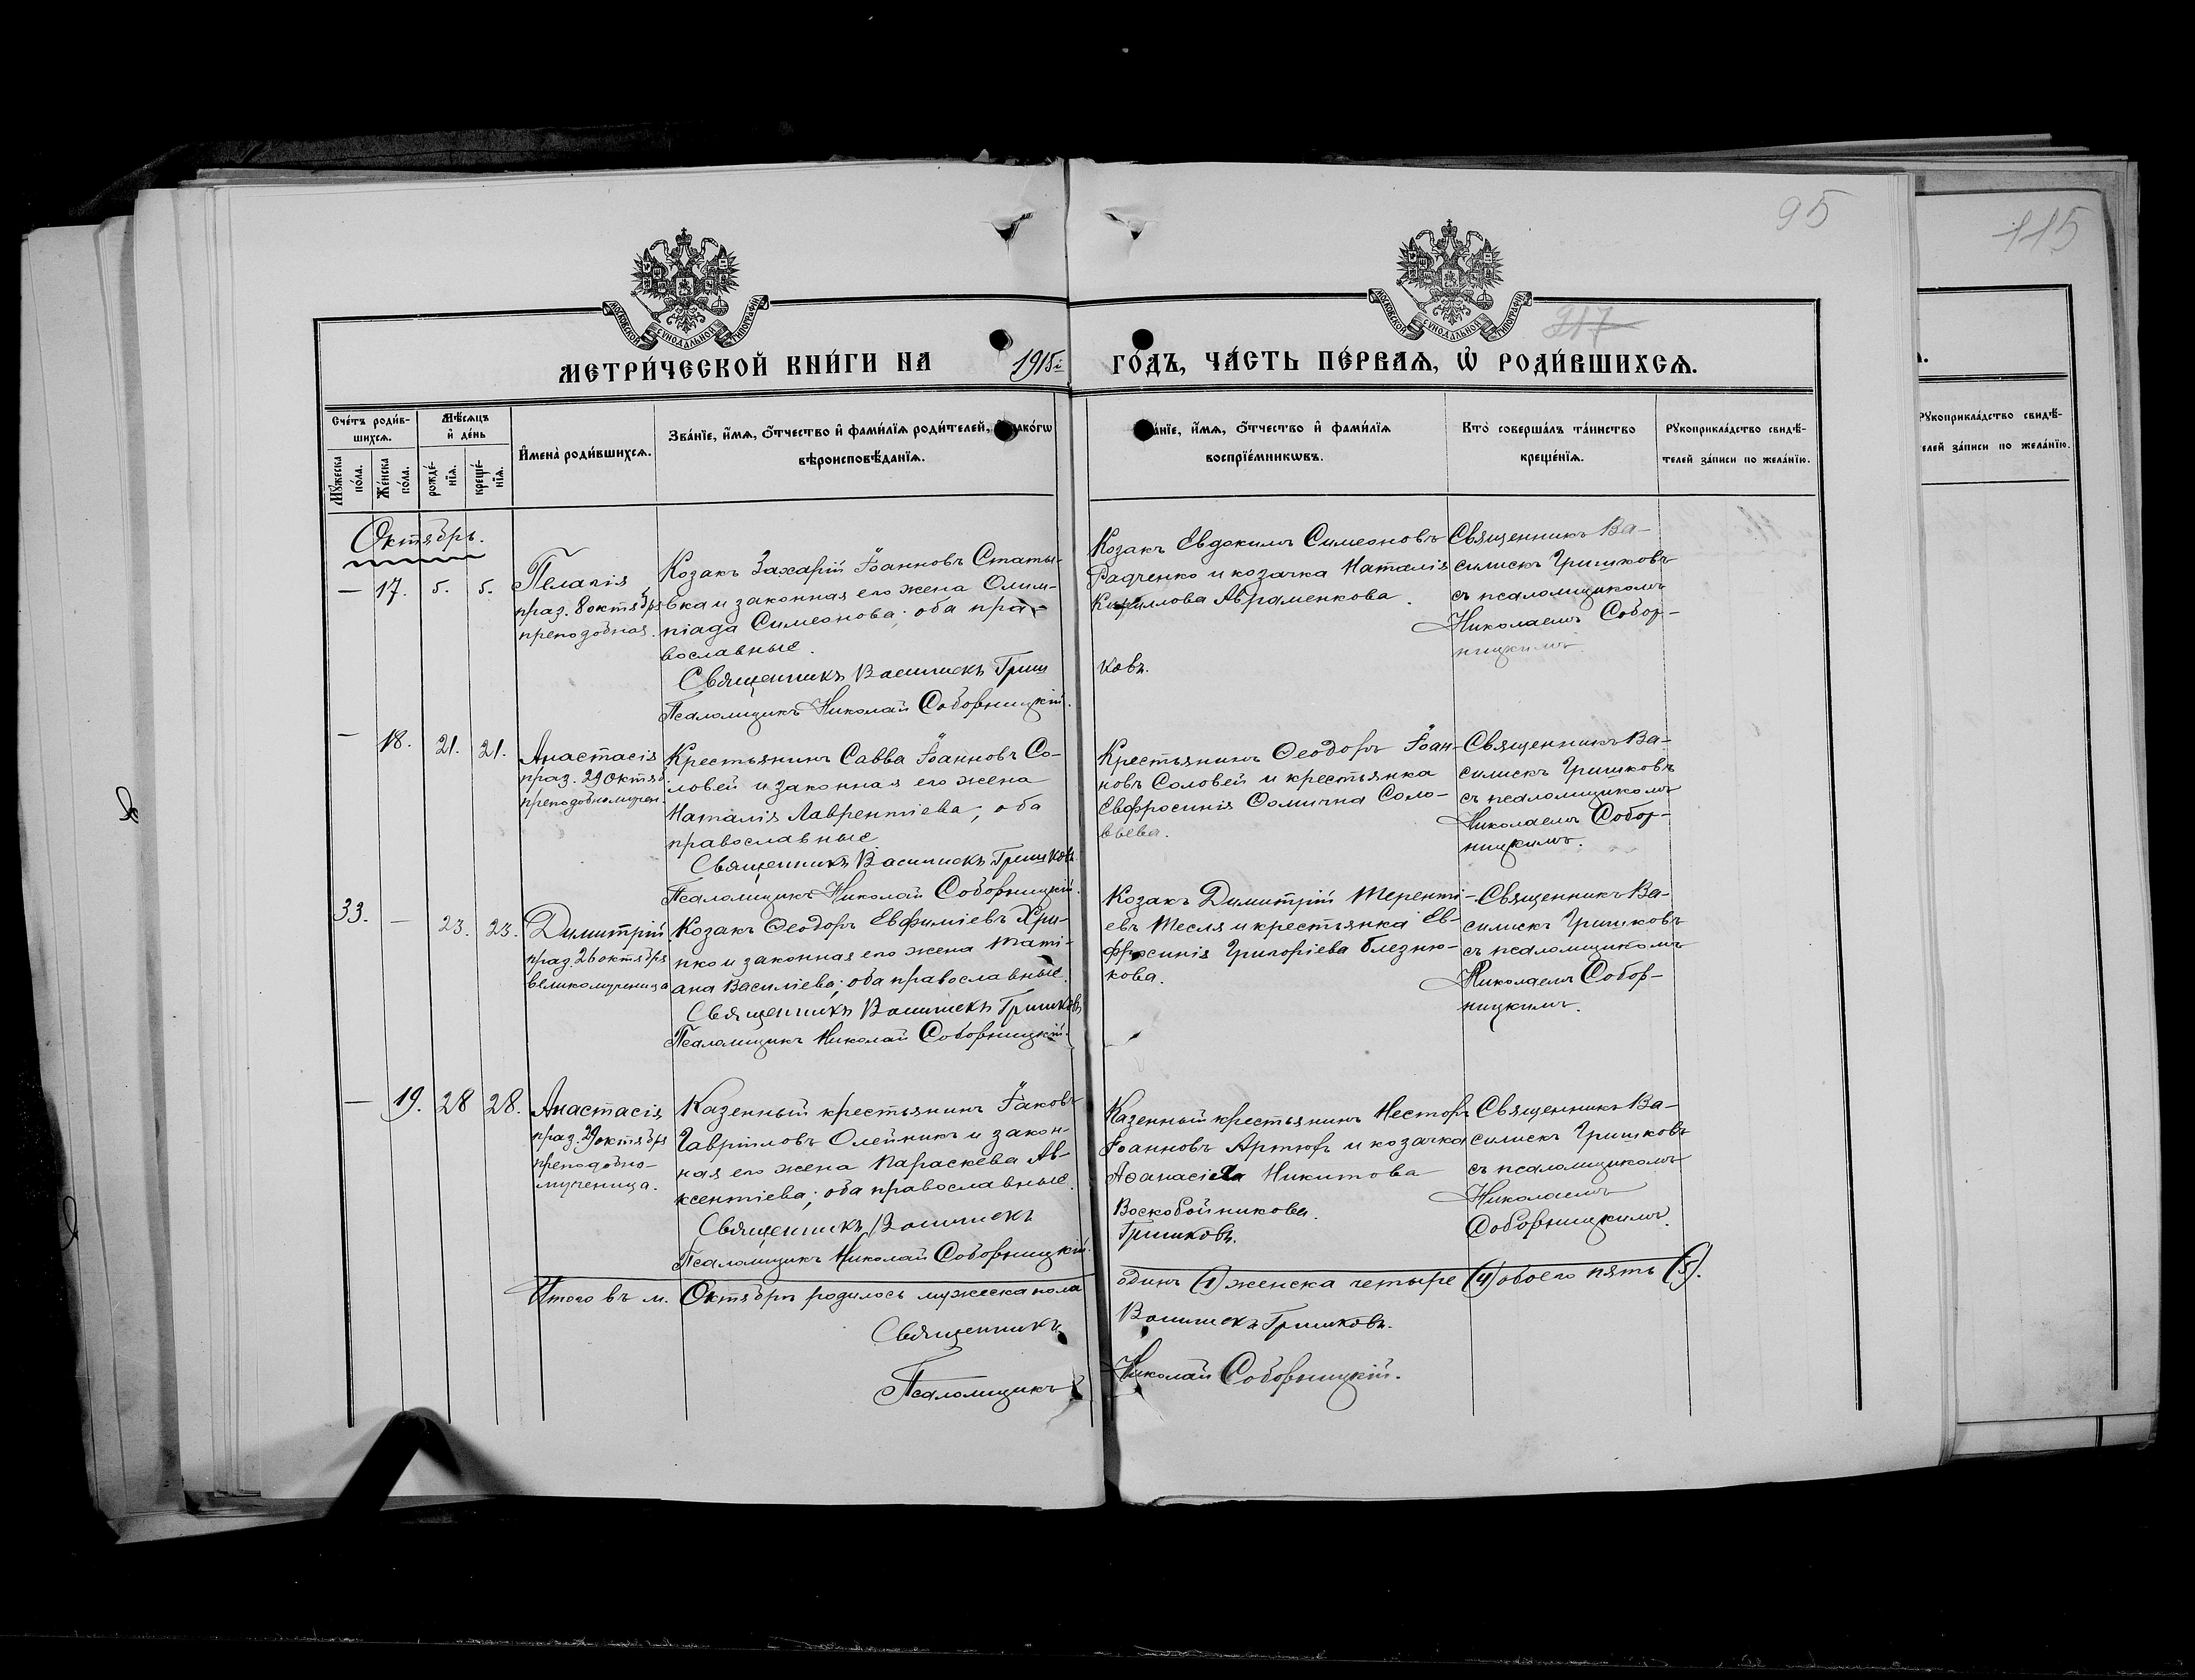 95
115
МОСКОВСКОЙ СѴНОДАЛЬНОЙ ТИПОГРАФІИ
МОСКОВСКОЙ СѴНОДАЛЬНОЙ ТИПОГРАФІИ
217
МЕТРИ́ЧЕСКОЙ КНИ́ГИ НА 1915й ГО́ДЪ, ЧА́СТЬ ПЕ́РВАЯ, Ѡ҆ РОДИ́ВШИХСЯ.
Сче́тъ роди́в-
шихся.
Мѣ́сяцъ
и҆ де́нь
Му́жеска
по́ла.
Же́нска
по́ла.
рожде́-
нїя.
креще́-
нїя.
И҆мена̀ роди́вшихся.
Зва́нїе, и҆́мя, ѻ҆́тчество и҆ фами́лїя роди́телей,
вѣроисповѣ́данїя.
и҆́мя, ѻ҆́тчество и҆ фами́лїя
воспрїе́мникѡвъ.
Кто̀ соверша́лъ та́инство
креще́нїя.
Рукоприкла́дство свидѣ́-
телей за́писи по жела́нїю.
Рукоприкла́дство свидѣ́-
елей за́писи по жела́нїю.
Октябрь.
— 17. 5. 5.
Пелагія
праз. 8 октября
преподобная.
Козакъ Захарій Іоанновъ Статы-
вка и законная его жена Олим-
піада Симеонова; оба пра-
вославные.
Священникъ Василискъ Гриш
ковъ.
Псаломщикъ Николай Соборницкій.
Козакъ Евдокимъ Симеоновъ
Радченко и козачка Наталія
Кириллова Авраменкова.
Священникъ Ва-
силискъ Гришковъ
съ псаломщикомъ
Николаемъ Собор-
ницкимъ.
— 18. 21. 21.
Анастасія
праз. 29 октяб.
преподобномучен.
Крестьянинъ Савва Іоанновъ Со-
ловей и законная его жена
Наталія Лаврентіева; оба
православные
Священникъ Василискъ Гришковъ.
Псаломщикъ Николай Соборницкій.
Крестьянинъ Ѳеодоръ Іоан-
новъ Соловей и крестьянка
Евфросинія Ѳомична Соло-
вьева.
Священникъ Ва-
силискъ Гришковъ
съ псаломщикомъ
Николаемъ Собор-
ницкимъ.
33. — 23. 23.
Димитрій
праз. 26 октября
великомученица
Козакъ Ѳеодоръ Евфиміевъ Хри-
пко и законная его жена Таті-
ана Василіева; оба православные.
Священникъ Василискъ Гришковъ
Псаломщикъ Николай Соборницкій.
Козакъ Димитрій Теренті-
евъ Тесля и крестьянка Ев-
фросинія Григоріева
кова.
Священникъ Ва-
силискъ Гришковъ
съ псаломщикомъ
Николаемъ Собор-
ницкимъ.
— 19. 28 28.
Анастасія
праз. 29 октября
преподобно-
мученица.
Казенный крестьянинъ Іаковъ
Гавріиловъ Олейникъ и закон-
ная его жена Параскева Ав-
ксентіева; оба православные.
Священникъ Василискъ
Гришковъ.
Псаломщикъ Николай Соборницкій.
Казенный крестьянинъ Несторъ
Іоанновъ Артюхъ и козачка
Аѳанасіела Никитова
Воскобойникова.
Священникъ Ва-
силискъ Гришковъ
съ псаломщикомъ
Николаемъ
Соборницкимъ.
Итого въ м. Октябрѣ родилось мужеска пола одинъ (1) женска четыре (4) обоего пять (5).
Священникъ Василискъ Гришковъ.
Псаломщикъ Николай Соборницкій.